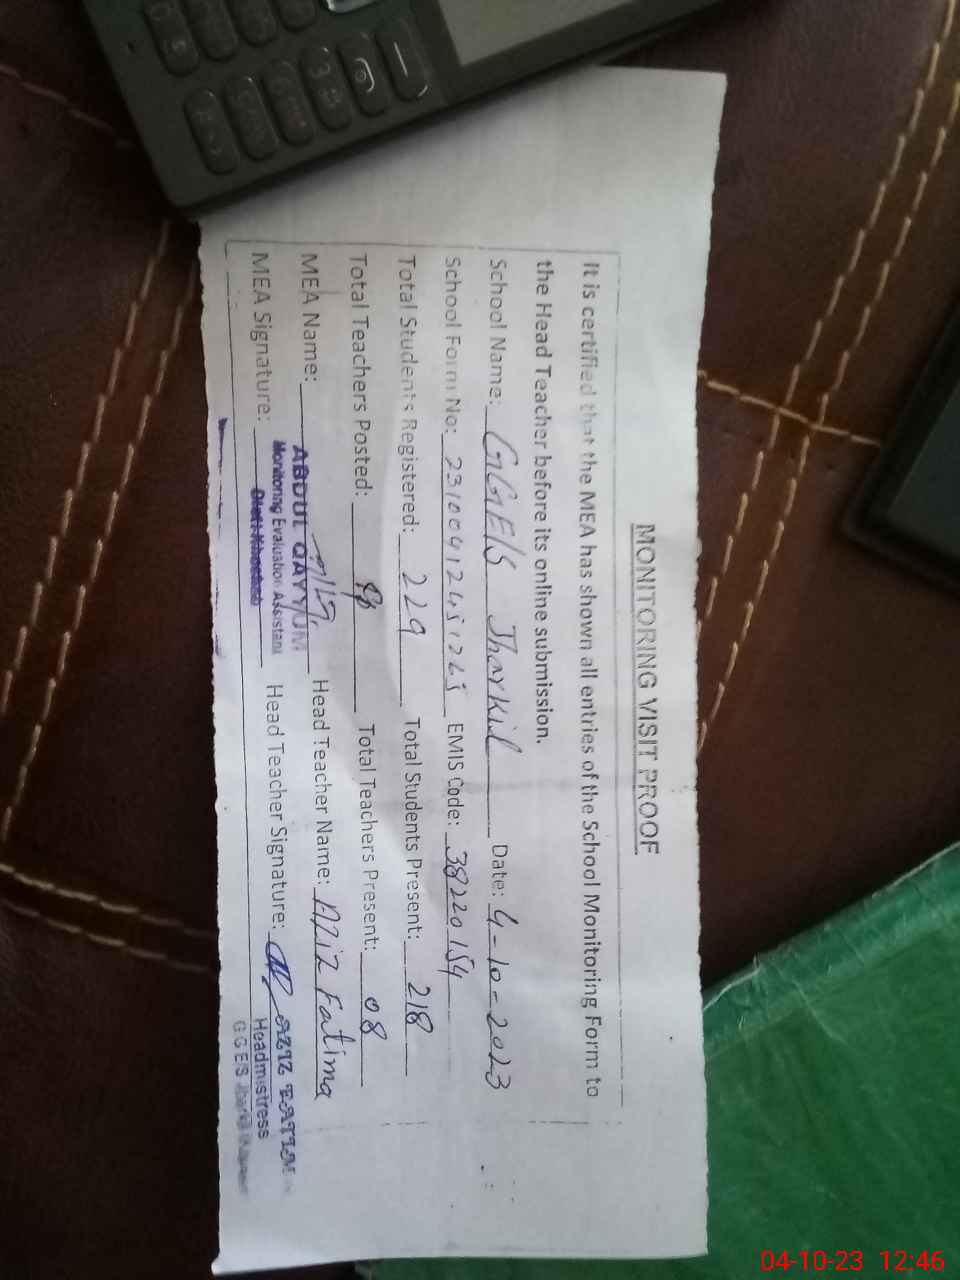 MONITORING VISIT PROOF
It is certified that the MEA has shown all entries of the School Monitoring Form to
the Head Teacher before its online submission.
School Name: GGE/S Jharkil Date: 4-10-2023
School Form No: EMIS Code: 38220154
Total Students Registered: 229 Total Students Present: 218
Total Teachers Posted: Total Teachers Present: 08
MEA Name: ABDUL QAYYUM Head Teacher Name: Aziz Fatima
Monitoring Evaluation Assistant
MEA Signature: Head Teacher Signature: AZIZ FATIMA
Headmistress
GGE/S Jharkil
04-10-23 12:46